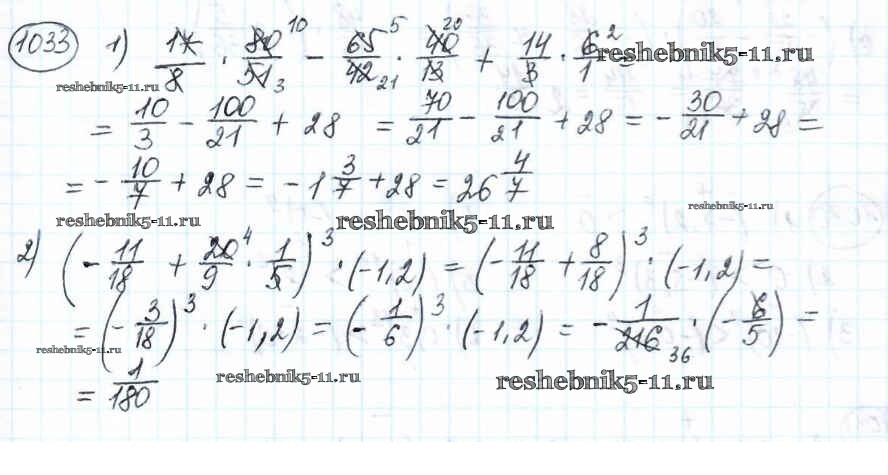 1033 1) 17/8 · 80/51 10 3 − 65/42 5 21 · 40/13 20 + 14/3 · 6/1 2 =
reshebnik5-11.ru
reshebnik5-11.ru
= 10/3 − 100/21 + 28 = 70/21 − 100/21 + 28 = − 30/21 + 28 =
= − 10/7 + 28 = − 1 3/7 + 28 = 26 4/7
reshebnik5-11.ru reshebnik5-11.ru reshebnik5-11.ru
2) (− 11/18 + 20/9 4 · 1/5)³ · (−1,2) = (− 11/18 + 8/18)³ · (−1,2) =
= (− 3/18)³ · (−1,2) = (− 1/6)³ · (−1,2) = − 1/216 36 · (− 6/5) =
reshebnik5-11.ru reshebnik5-11.ru reshebnik5-11.ru
= 1/180